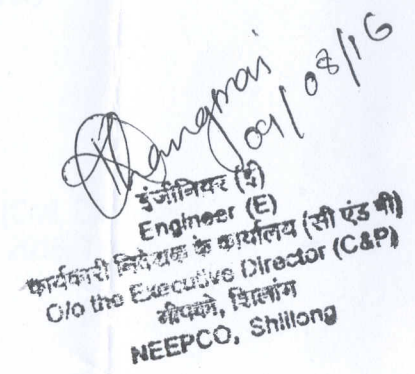 09/08/16
इंजीनियर (ई)
Engineer (E)
कार्यकारी निदेशक के कार्यालय (सी एंड पी)
O/o the Executive Director (C&P)
नीपको, शिलांग
NEEPCO, Shillong